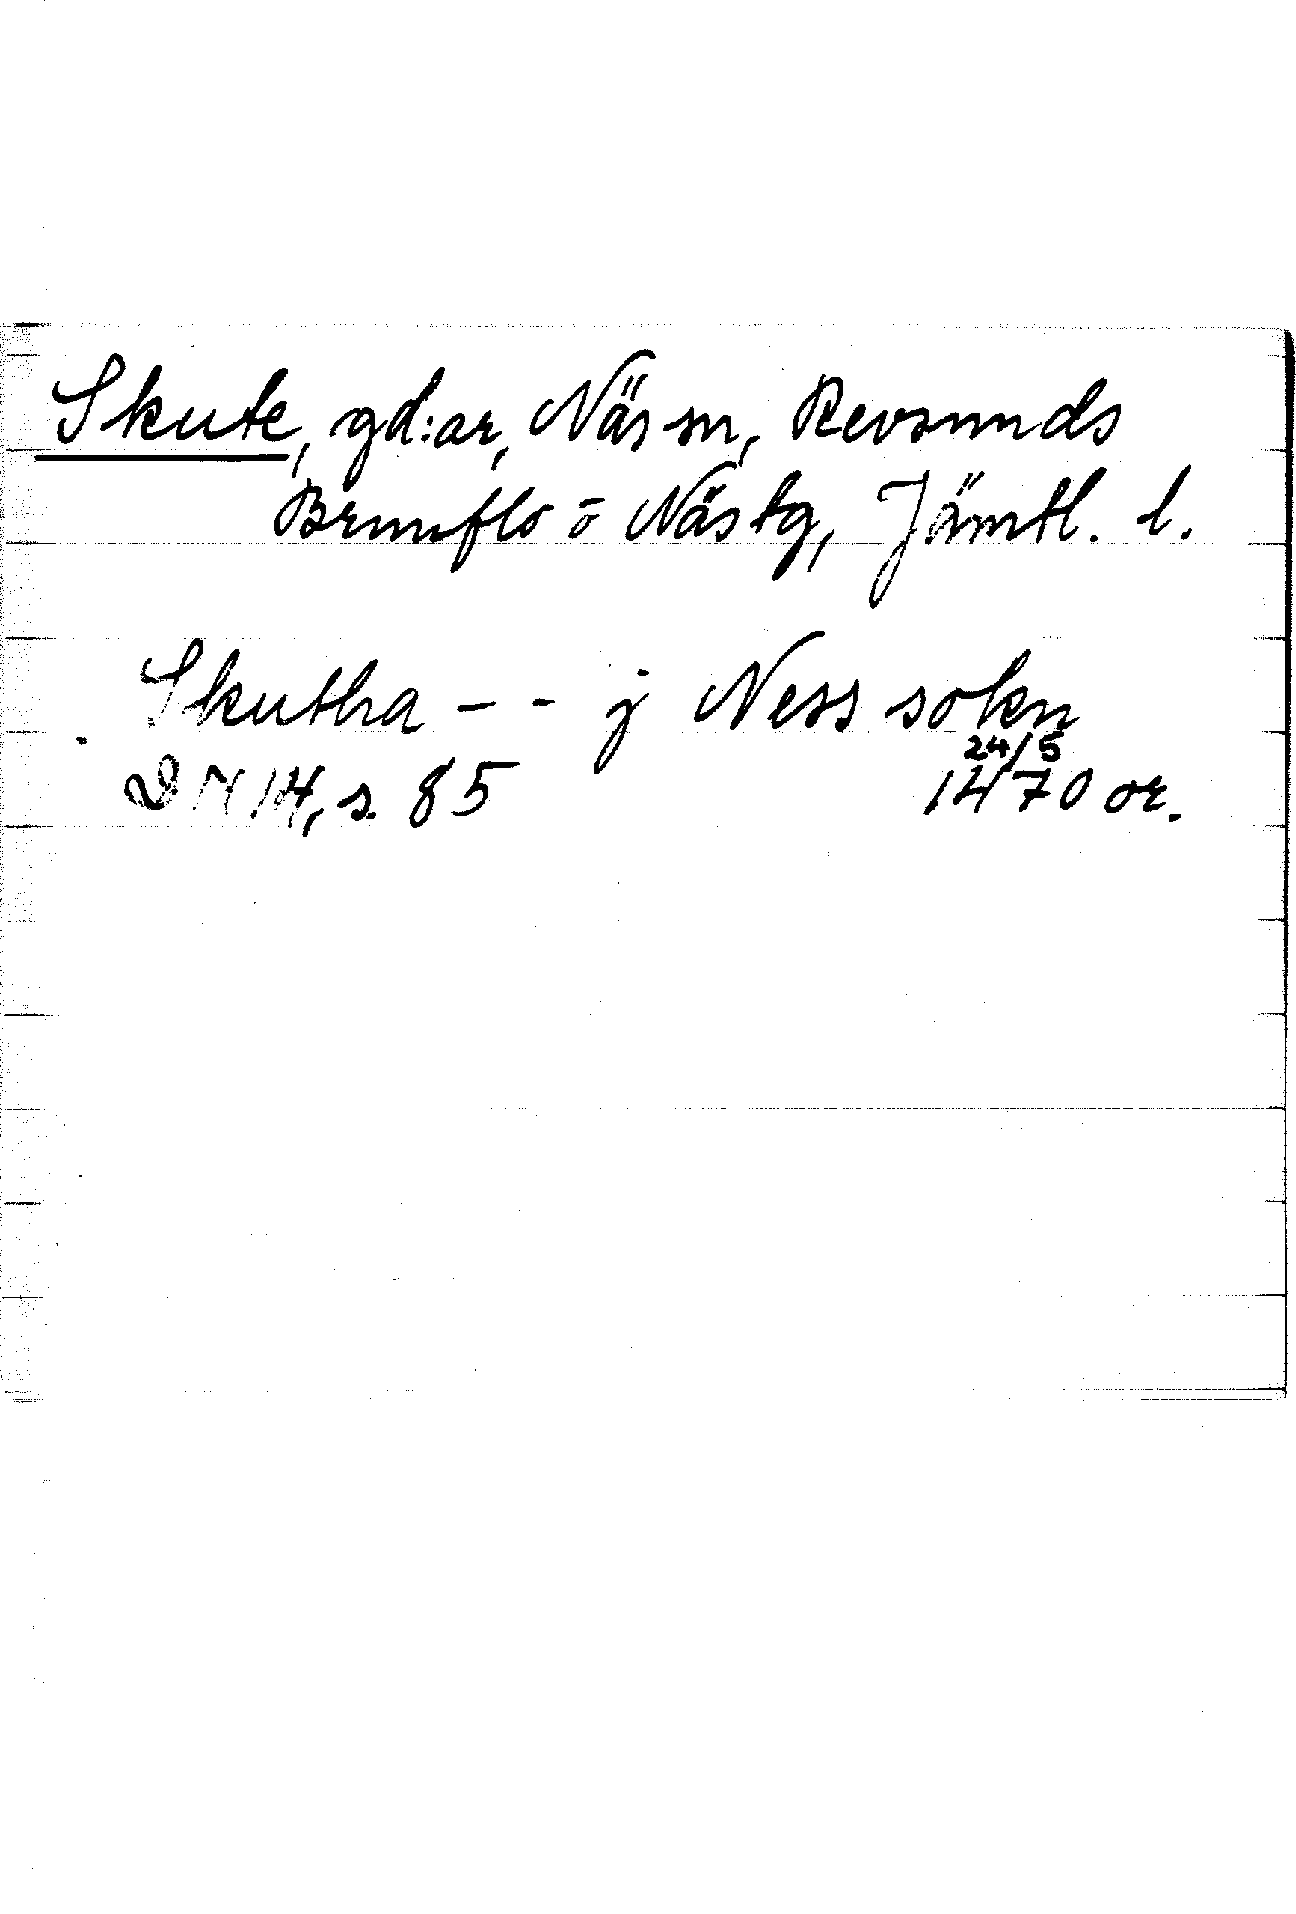 Skute, gd:ar, Näs sn, Revsunds
Brunflo o Näs tg, Jämtl. l.
Skutha - - j Ness sokn
24/5
DN 14, s. 85 1470 or.